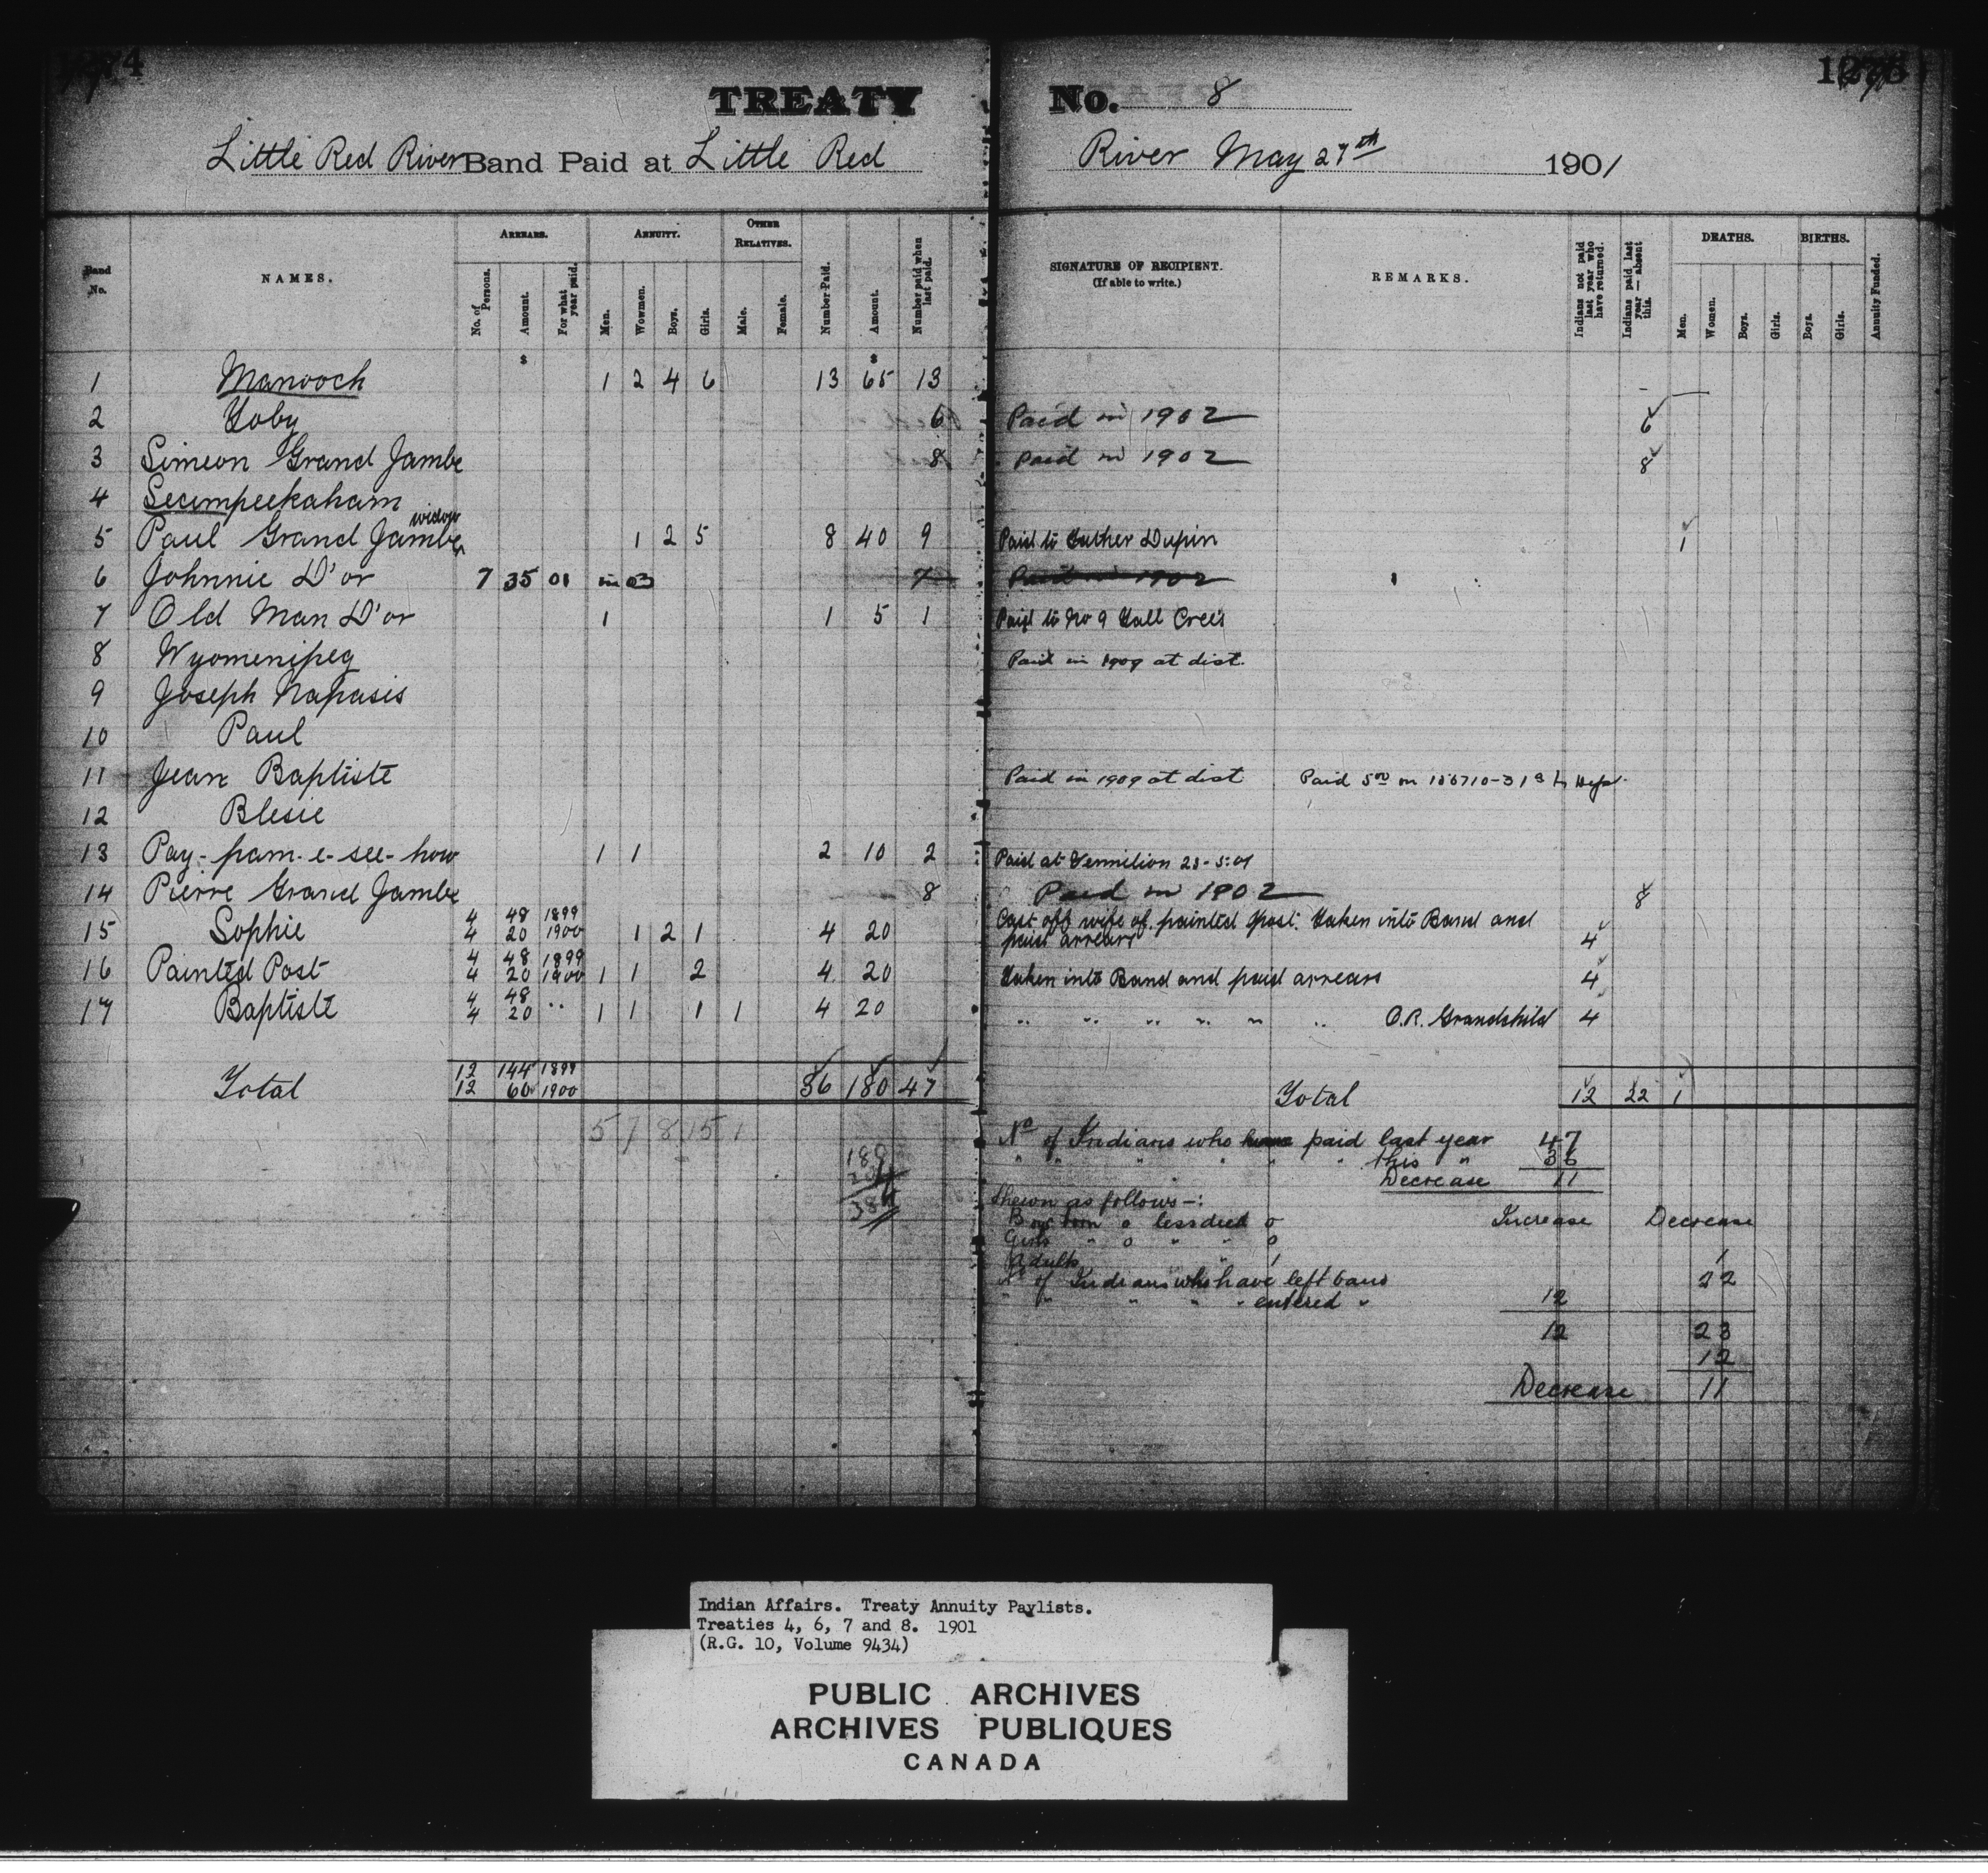 TREATY No. 8
Little Red River Band Paid at Little Red River May 27th 1901
Band No. NAMES. ARREARS. No. of Persons. Amount. For what year paid. ANNUITY. Men. Wowmen. Boys. Girls. OTHER RELATIVES. Male. Female. Number Paid. Amount. Number paid when last paid. SIGNATURE OF RECIPIENT. (If able to write.) REMARKS. Indians not paid last year who have returned. Indians paid last year — absent this. DEATHS. Men. Women. Boys. Girls. BIRTHS. Boys. Girls. Annuity Funded.
$ $
1 Manooch 1 2 4 6 13 65 13
2 Yoby 6 Paid in 1902 6
3 Simeon Grand Jambe 8 Paid in 1902 8
4 Secimpeekaham
5 Paul Grand Jambe widow 1 2 5 8 40 9 Paid to Father Dupin 1
6 Johnnie D'or 7 35 01 in 03 7 Paid in 1902 1
7 Old Man D'or 1 1 5 1 Paid to No 9 Tall Cree's
8 Wyomenipeg Paid in 1909 at dist.
9 Joseph Napasis
10 Paul
11 Jean Baptiste Paid in 1909 at dist Paid 5.00 on
12 Blesie
13 Pay-pam-e-see-how 1 1 2 10 2 Paid at Vermilion 23-5-01
14 Pierre Grand Jambe 8 Paid in 1902 8
4 48 1899
15 Sophie 4 20 1900 1 2 1 4 20 Cast off wife of painted post. Taken into Band and paid arrears 4
4 48 1899
16 Painted Post 4 20 1900 1 1 2 4 20 Taken into Band and paid arrears 4
4 48
17 Baptiste 4 20 " 1 1 1 1 4 20 " " " " " " O.R. Grandchild 4
12 144 1899
Total 12 60 1900 36 180 47 Total 12 22 1
5 7 8 15 1
No of Indians who paid last year 47
" " " " " this " 36
Decrease 11
180
204
384
Shewn as follows -:
Boys born 0 less died 0 Increase Decrease
Girls " 0 " " 0
Adults " 1 1
No of Indians who have left band 22
" " " " " entered " 12
12 23
12
Decrease 11
Indian Affairs. Treaty Annuity Paylists.
Treaties 4, 6, 7 and 8. 1901
(R.G. 10, Volume 9434)
PUBLIC ARCHIVES
ARCHIVES PUBLIQUES
CANADA